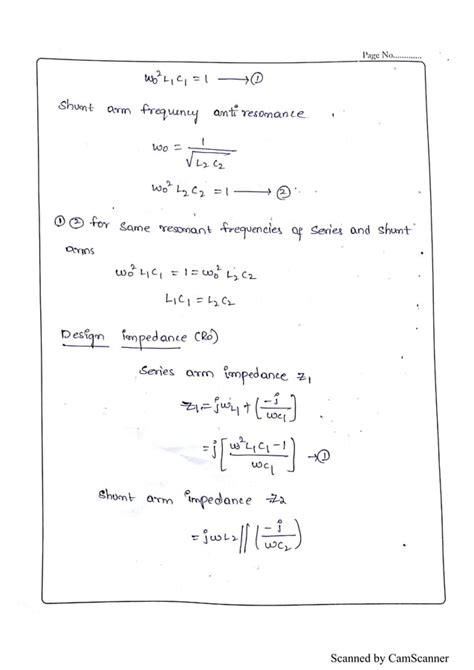 Page No.............
ω₀² L₁ C₁ = 1 ⟶ ①
Shunt arm frequency anti resonance
ω₀ = 1/√(L₂ C₂)
ω₀² L₂ C₂ = 1 ⟶ ②
① ② for same resonant frequencies of series and shunt
arms
ω₀² L₁ C₁ = 1 = ω₀² L₂ C₂
L₁ C₁ = L₂ C₂
Design impedance (R₀)
Series arm impedance z₁
z₁ = jωL₁ + (-j/ωC₁)
= j[(ω² L₁ C₁ - 1)/ωC₁] → ①
Shunt arm impedance z₂
= jωL₂ || (-j/ωC₂)
Scanned by CamScanner